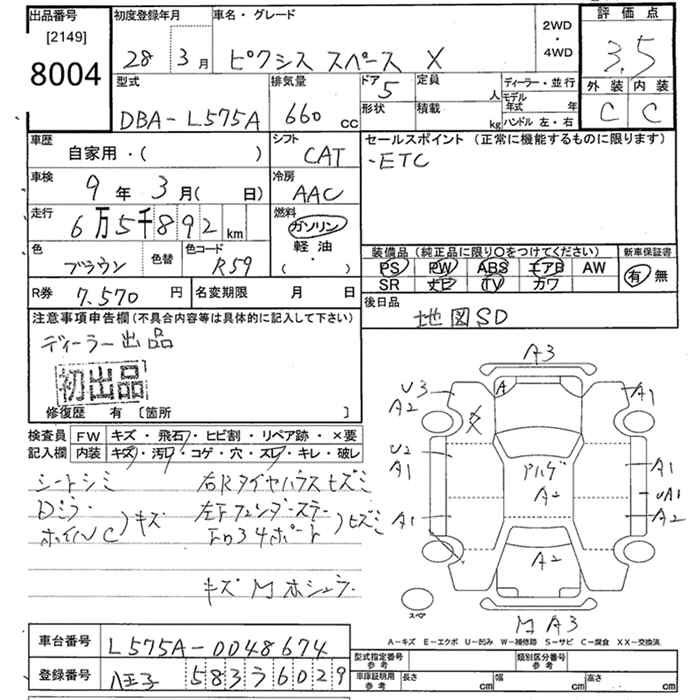 出品番号
[2149]
8004
初度登録年月
28 年 3 月
車名・グレード
ピクシス スペース X
2WD
・
4WD
評価点
3.5
外装 内装
C C
型式
DBA-L575A
排気量
660 cc
ドア
5
形状
定員
人
積載
kg
ディーラー・並行
モデル年式 年
ハンドル 左・右
車歴
自家用・( )
シフト
CAT
セールスポイント(正常に機能するものに限ります)
・ETC
車検
9 年 3 月( 日)
冷房
AAC
走行
6万5千892 km
燃料
ガソリン
軽油
( ・ )
色
ブラウン
色替
色コード
R59
装備品(純正品に限り〇をつけてください)
PS PW ABS エアB AW
SR ナビ TV カワ
新車保証書
有 無
R券
7.570 円
名変期限 月 日
後日品
地図SD
注意事項申告欄(不具合内容等は具体的に記入して下さい)
ディーラー出品
初出品
修復歴 有 [箇所 ]
検査員
記入欄
FW キズ・飛石・ヒビ割・リペア跡・×要
内装 キズ・汚れ・コゲ・穴・スレ・キレ・破レ
シートシミ
Dミラ・
ホイルC
)キズ
右Rタイヤハウスヒズミ
左Fフェンダーステー
)ヒズミ
キズM ホシュウ
A3
U3
A2
A
A1
U2
A1
アルゲ
A2
A1
UA1
A2
A1
A2
スペア
M A3
A-キズ E-エクボ U-凹み W-補修跡 S-サビ C-腐食 XX-交換済
車台番号
L575A-0048674
登録番号
八王子 583 う 6029
型式指定番号
参考
類別区分番号
参考
車庫証明用
参考
長さ cm
幅 cm
高さ cm